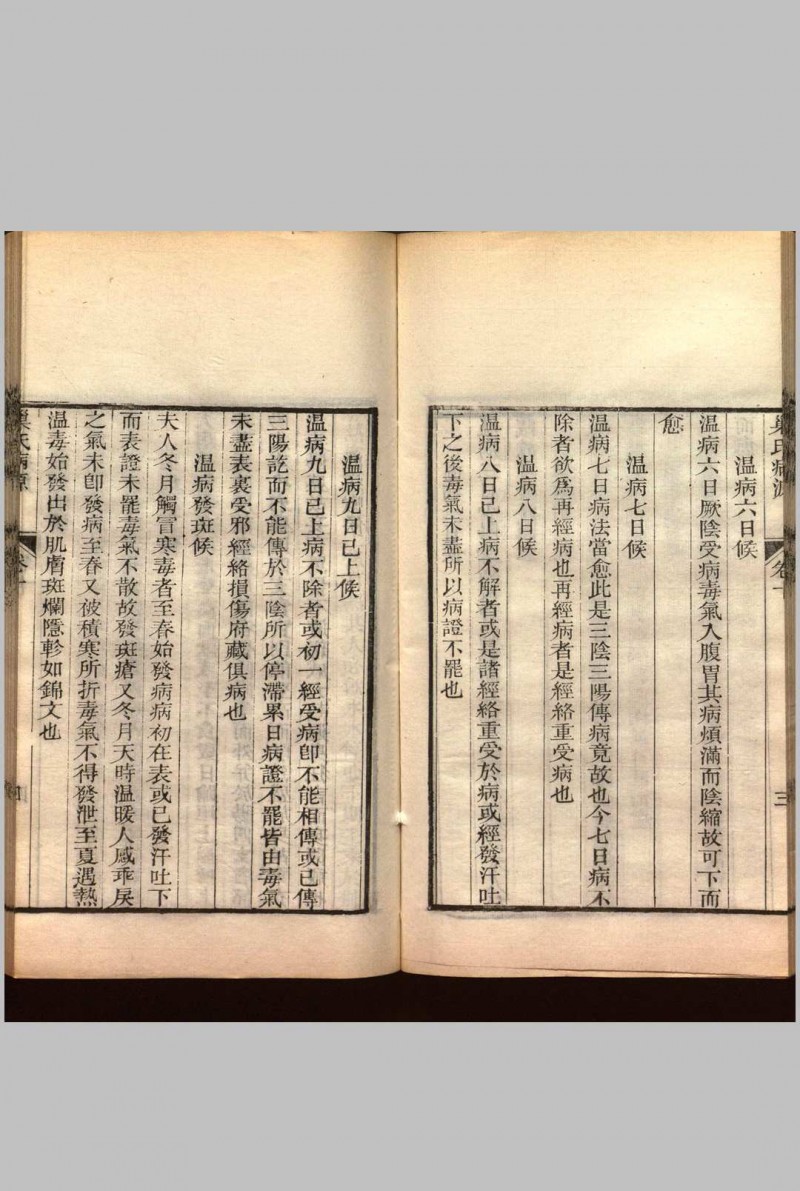 巢氏病源
卷十
三
温病六日候
温病六日厥陰受病毒氣入腹胃其病煩滿而陰縮故可下而
愈
温病七日候
温病七日病法當愈此是三陰三陽傳病竟故也今七日病不
除者欲爲再經病也再經病者是經絡重受病也
温病八日候
温病八日已上病不解者或是諸經絡重受於病或經發汗吐
下之後毒氣未盡所以病證不罷也
温病九日已上候
温病九日已上病不除者或初一經受病卽不能相傳或已傳
三陽訖而不能傳於三陰所以停滯累日病證不罷皆由毒氣
未盡表裏受邪經絡損傷府藏俱病也
温病發斑候
夫人冬月觸冒寒毒者至春始發病病初在表或已發汗吐下
而表證未罷毒氣不散故發斑瘡又冬月天時温暖人感乖戾
之氣未卽發病至春又彼積寒所折毒氣不得發泄至夏遇熱
温毒始發出於肌膚斑爛隱軫如錦文也
巢氏病源
卷十
四